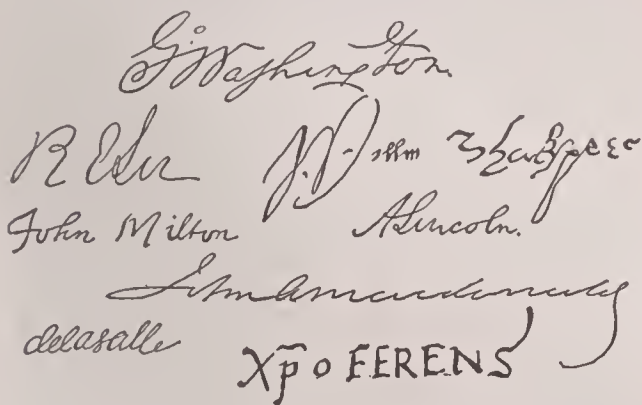 G. Washington.
R E Lee Willm Shakspeer
John Milton A Lincoln.
John A Macdonald
delasalle
Xp̄o FERENS